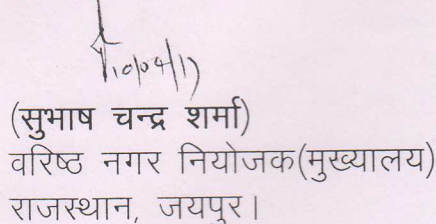 10/04/17
(सुभाष चन्द्र शर्मा)
वरिष्ठ नगर नियोजक(मुख्यालय)
राजस्थान, जयपुर।